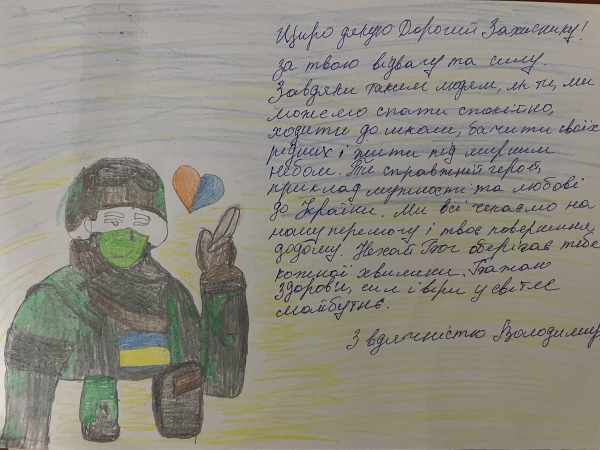 Щиро дякую Дорогий Захиснику!
за твою відвагу та силу.
Завдяки таким людям, як ти, ми
можемо спати спокійно,
ходити до школи, бачити своїх
рідних і жити під мирним
небом. Ти справжній герой,
приклад мужності та любові
до України. Ми всі чекаємо на
нашу перемогу і твоє повернення
додому. Нехай Бог оберігає тебе
кожної хвилини. Бажаю
здоровя, сил і віри у світле
майбутнє.
З вдячністю Володимир